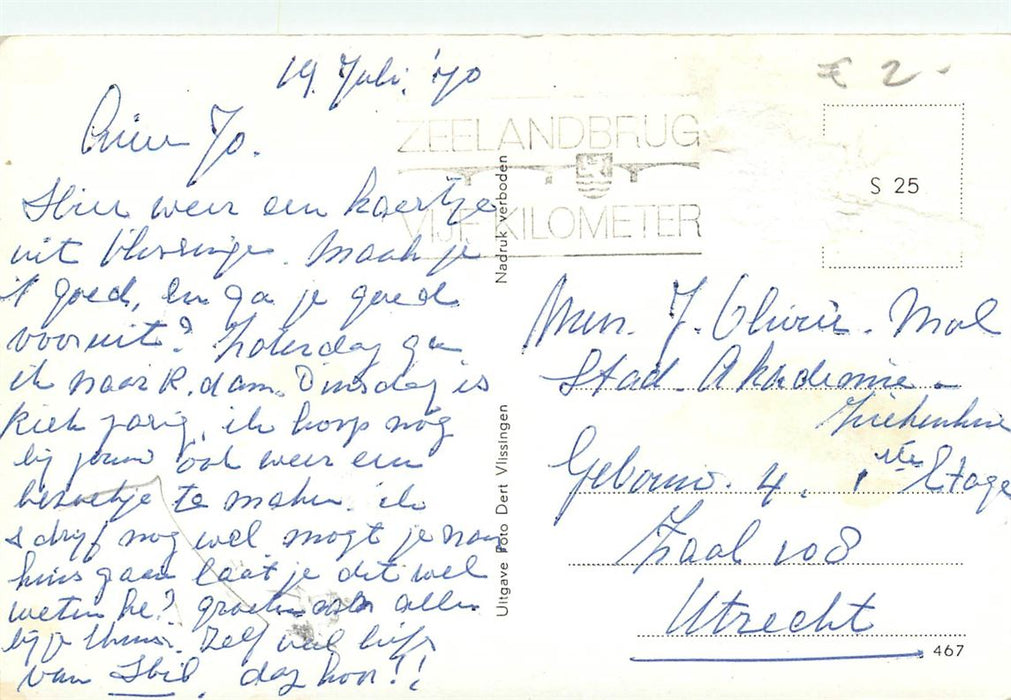 19. Juli. '70
€ 2.-
Jo.
ZEELANDBRUG
VIJF KILOMETER
S 25
Hier weer een kaartje
uit Vlissingen. Maak je
't goed, en ga je goed
vooruit? Zaterdag ga
ik naar R.dam. Dinsdag is
Riek jarig, ik hoop nog
bij jouw ook weer een
bezoekje te maken. ik
schrijf nog wel mogt je naar
huis gaan laat je dit wel
weten he? groeten aan allen
bij je thuis. Zelf veel liefs
van dag hoor!!
Nadruk verboden
Uitgave Foto Dert Vlissingen
Mevr. J. Olivier. Mol
Stad. Akademie -
Ziekenhuis
Gebouw. 4. 1ste Etage
Zaal 108
Utrecht
467